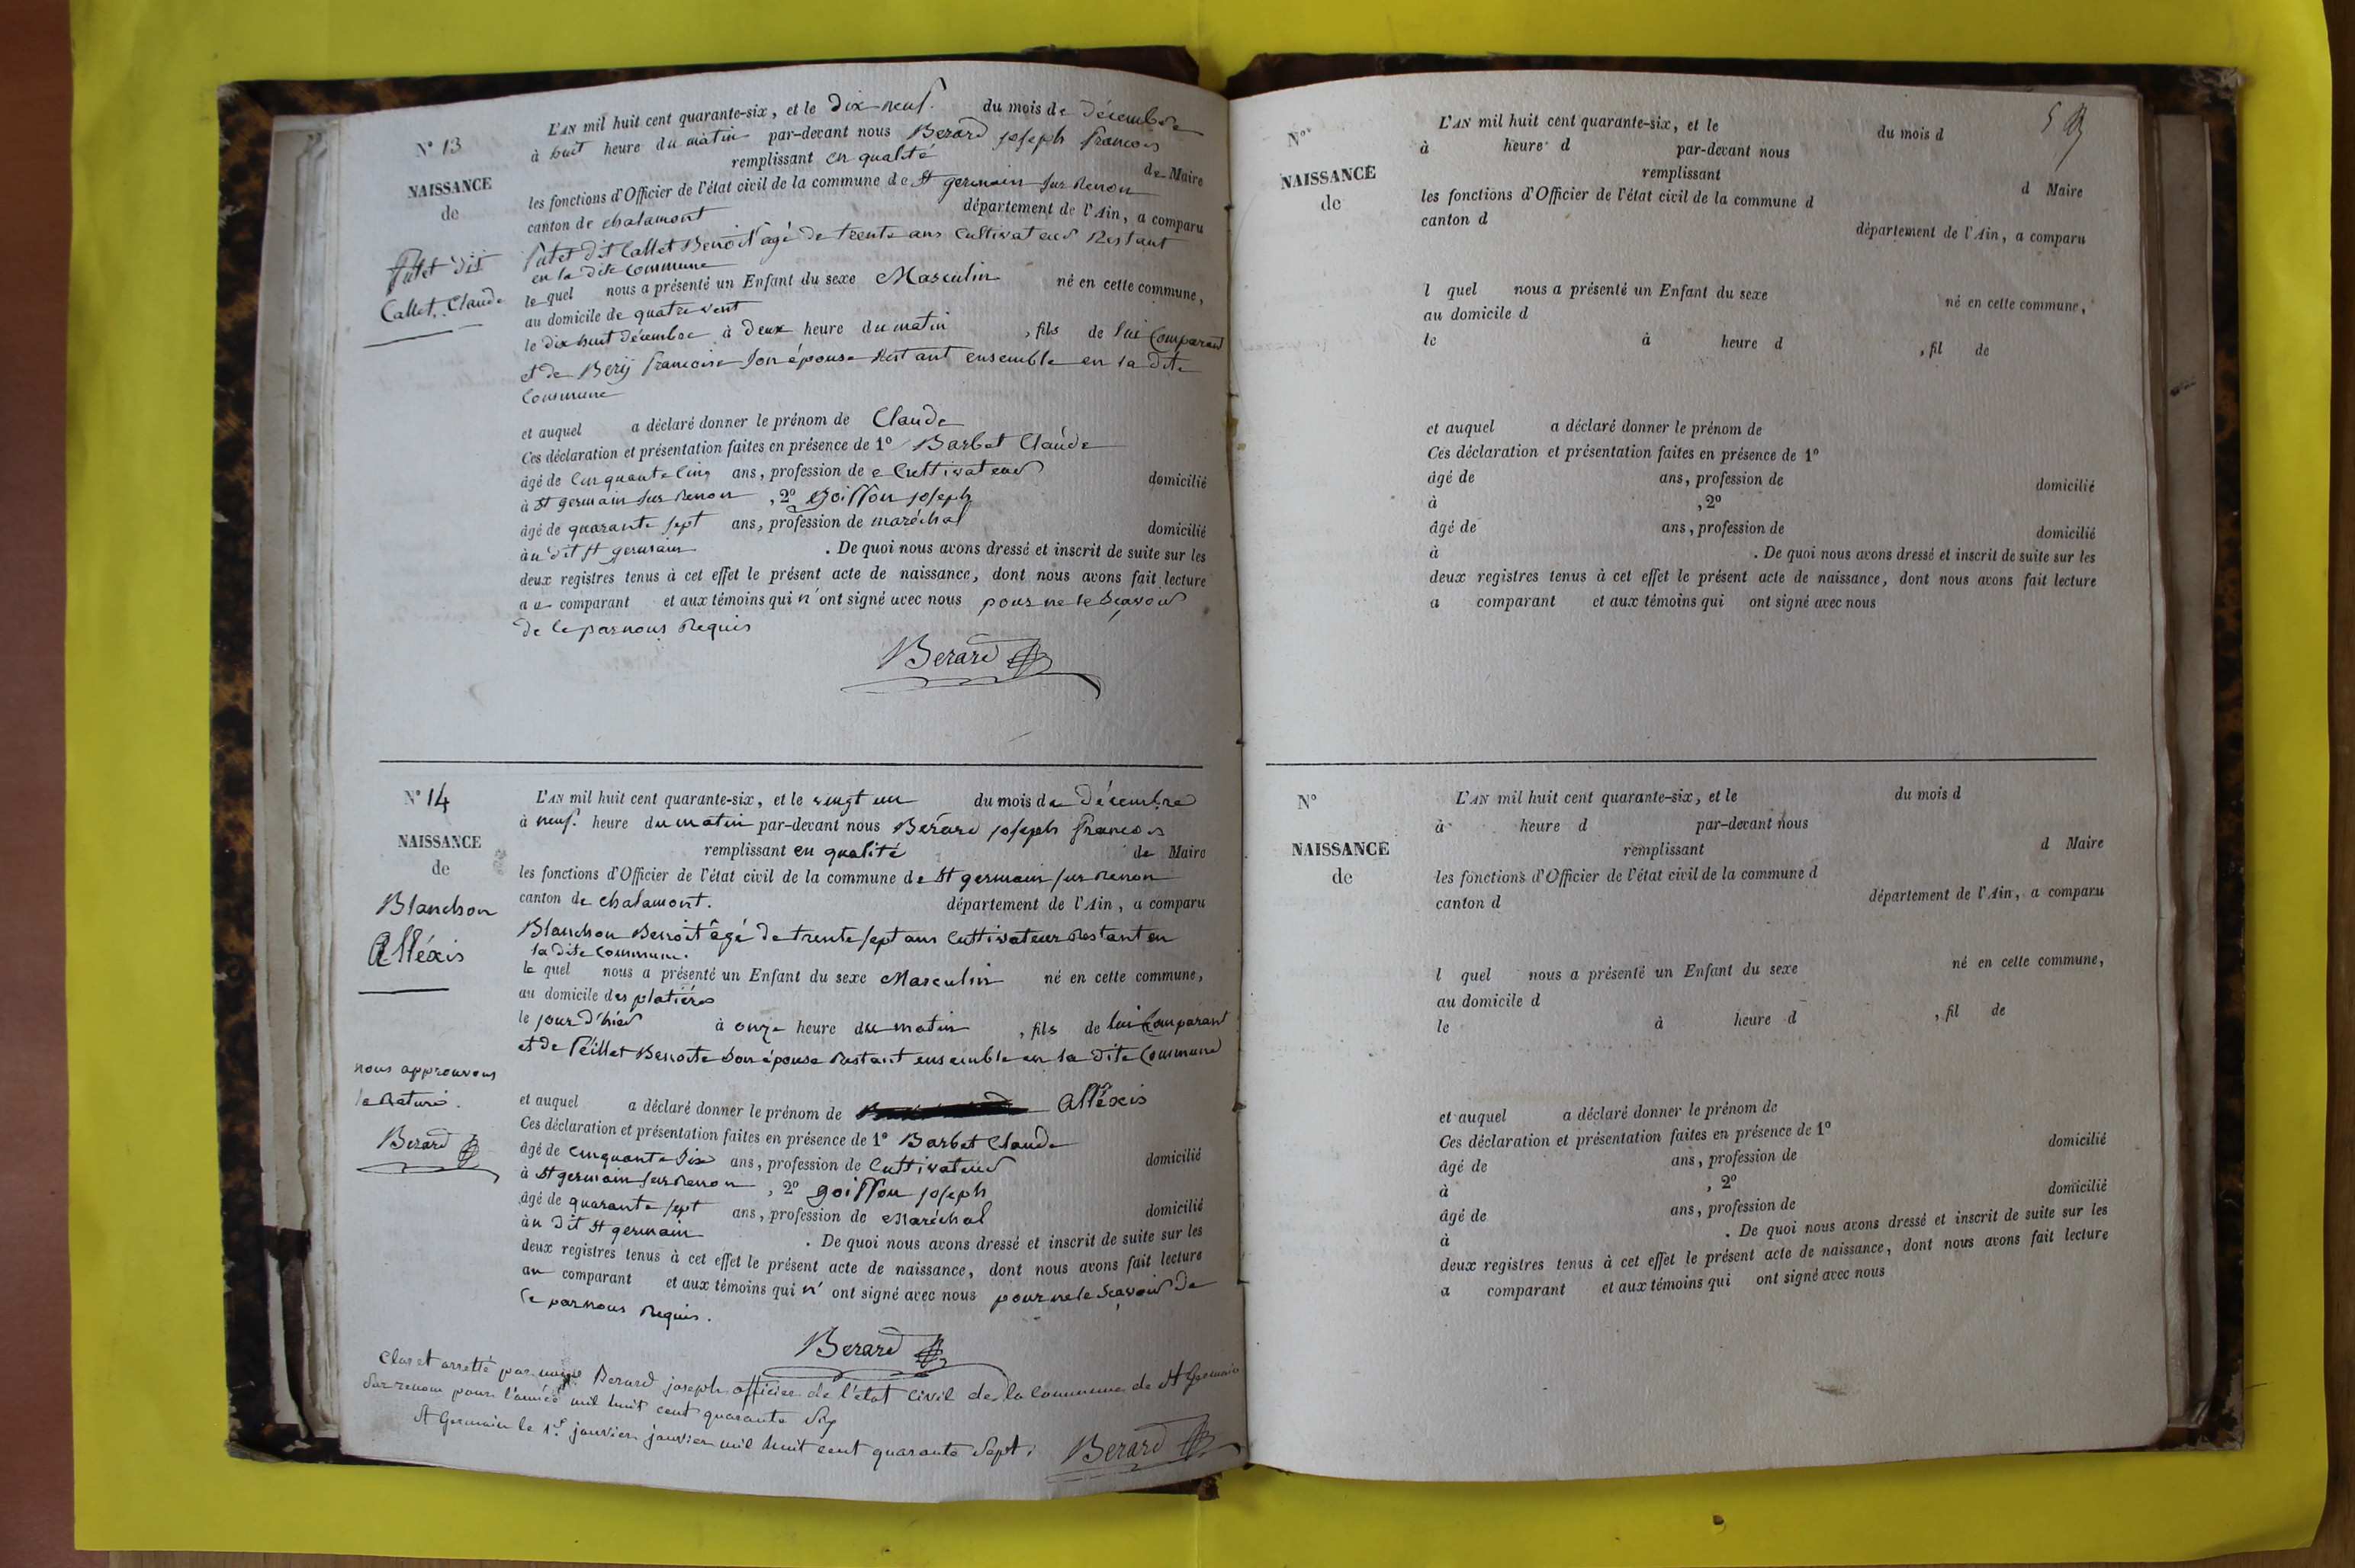 N° 13
NAISSANCE
de
Putet dit
Callet, Claude
L'AN mil huit cent quarante-six, et le dix neuf. du mois de décembre
à huit heure du matin par-devant nous Berard joseph francois
remplissant en qualité de Maire
les fonctions d'Officier de l'état civil de la commune de St germain sur Renon
canton de chalamont département de l'Ain, a comparu
Putet dit Callet Benoit âgé de trente ans Cultivateur Restant
en la dite commune
le quel nous a présenté un Enfant du sexe Masculin né en cette commune,
au domicile de quatre vent
le dix huit décembre à deux heure du matin , fils de lui Comparant
et de Berij francoise son épouse Restant ensemble en la dite
Commune
et auquel a déclaré donner le prénom de Claude
Ces déclaration et présentation faites en présence de 1° Barbet Claude
âgé de Cinquante Cinq ans, profession de Cultivateur domicilié
à St germain sur Renon , 2° goiffon joseph
âgé de quarante sept ans, profession de maréchal domicilié
àu dit St germain . De quoi nous avons dressé et inscrit de suite sur les
deux registres tenus à cet effet le présent acte de naissance, dont nous avons fait lecture
au comparant et aux témoins qui n'ont signé avec nous pour ne le Scavoir
de ce par nous Requis
Berard
N° 14
NAISSANCE
de
Blanchon
Alléxis
nous approuvons
la Rature.
Berard
L'AN mil huit cent quarante-six, et le vingt un du mois de Décembre
à neuf. heure du matin par-devant nous Berard joseph francois
remplissant en qualité de Maire
les fonctions d'Officier de l'état civil de la commune de St germain sur Renon
canton de chalamont. département de l'Ain, a comparu
Blanchon Benoit âgé de trente sept ans Cultivateur Restant en
la dite Commune.
le quel nous a présenté un Enfant du sexe Masculin né en cette commune,
au domicile des platières
le jour d'hier à onze heure du matin , fils de lui Comparant
et de Péillet Benoite son épouse Restant ensemble en la dite Commune
et auquel a déclaré donner le prénom de Alléxis
Ces déclaration et présentation faites en présence de 1° Barbet Claude
âgé de Cinquante Six ans, profession de Cultivateur domicilié
à St germain sur Renon , 2° goiffon joseph
âgé de quarante sept ans, profession de Maréchal domicilié
àu dit St germain . De quoi nous avons dressé et inscrit de suite sur les
deux registres tenus à cet effet le présent acte de naissance, dont nous avons fait lecture
au comparant et aux témoins qui n'ont signé avec nous pour ne le Scavoir de
Ce par nous Requis.
Berard
Clos et arretté par nous Berard joseph officier de l'état civil de la commune de St Germain
Sur renom pour l'année mil huit cent quarante Six
St Germain le 1er janvier janvier mil huit cent quarante Sept.
Berard
N°
NAISSANCE
de
L'AN mil huit cent quarante-six, et le du mois d
à heure d par-devant nous
remplissant d Maire
les fonctions d'Officier de l'état civil de la commune d
canton d département de l'Ain, a comparu
l quel nous a présenté un Enfant du sexe né en cette commune,
au domicile d
le à heure d , fil de
et auquel a déclaré donner le prénom de
Ces déclaration et présentation faites en présence de 1°
âgé de ans, profession de domicilié
à , 2°
âgé de ans, profession de domicilié
à . De quoi nous avons dressé et inscrit de suite sur les
deux registres tenus à cet effet le présent acte de naissance, dont nous avons fait lecture
a comparant et aux témoins qui ont signé avec nous
N°
NAISSANCE
de
L'AN mil huit cent quarante-six, et le du mois d
à heure d par-devant nous
remplissant d Maire
les fonctions d'Officier de l'état civil de la commune d
canton d département de l'Ain, a comparu
l quel nous a présenté un Enfant du sexe né en cette commune,
au domicile d
le à heure d , fil de
et auquel a déclaré donner le prénom de
Ces déclaration et présentation faites en présence de 1°
âgé de ans, profession de domicilié
à , 2°
âgé de ans, profession de domicilié
à . De quoi nous avons dressé et inscrit de suite sur les
deux registres tenus à cet effet le présent acte de naissance, dont nous avons fait lecture
a comparant et aux témoins qui ont signé avec nous